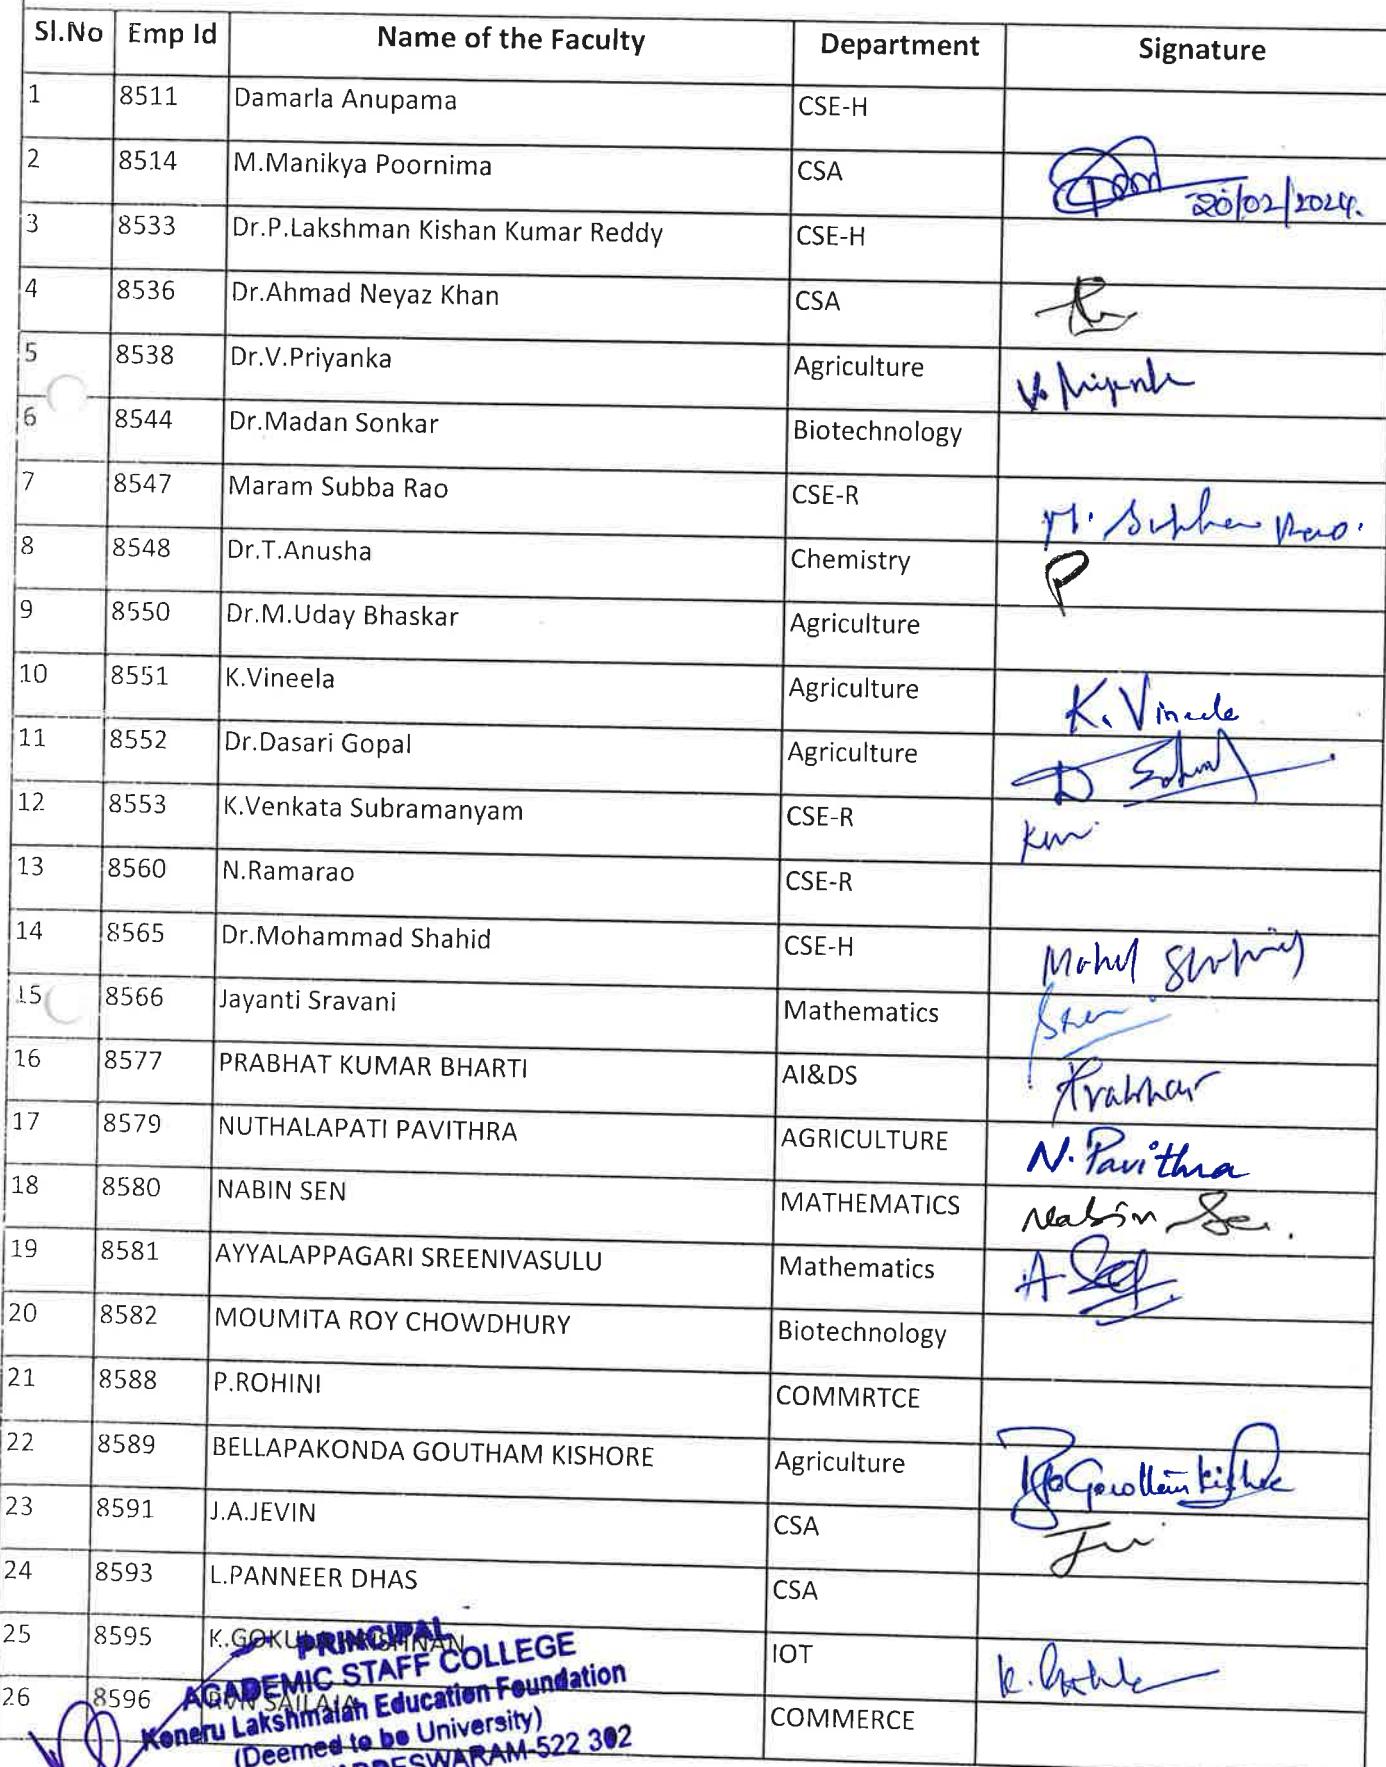 Sl.No Emp Id Name of the Faculty Department Signature
1 8511 Damarla Anupama CSE-H
2 8514 M.Manikya Poornima CSA 20/02/2024.
3 8533 Dr.P.Lakshman Kishan Kumar Reddy CSE-H
4 8536 Dr.Ahmad Neyaz Khan CSA
5 8538 Dr.V.Priyanka Agriculture V. Priyanka
6 8544 Dr.Madan Sonkar Biotechnology
7 8547 Maram Subba Rao CSE-R M. Subba Rao.
8 8548 Dr.T.Anusha Chemistry
9 8550 Dr.M.Uday Bhaskar Agriculture
10 8551 K.Vineela Agriculture K. Vineela
11 8552 Dr.Dasari Gopal Agriculture
12 8553 K.Venkata Subramanyam CSE-R
13 8560 N.Ramarao CSE-R
14 8565 Dr.Mohammad Shahid CSE-H Mohd Shahid
15 8566 Jayanti Sravani Mathematics
16 8577 PRABHAT KUMAR BHARTI AI&DS Prabhat
17 8579 NUTHALAPATI PAVITHRA AGRICULTURE N. Pavithra
18 8580 NABIN SEN MATHEMATICS Nabin Sen.
19 8581 AYYALAPPAGARI SREENIVASULU Mathematics
20 8582 MOUMITA ROY CHOWDHURY Biotechnology
21 8588 P.ROHINI COMMRTCE
22 8589 BELLAPAKONDA GOUTHAM KISHORE Agriculture Goutham Kishore
23 8591 J.A.JEVIN CSA
24 8593 L.PANNEER DHAS CSA
25 8595 IOT
26 8596 SAILAJA COMMERCE
PRINCIPAL
ACADEMIC STAFF COLLEGE
Koneru Lakshmaiah Education Foundation
(Deemed to be University)
522 302